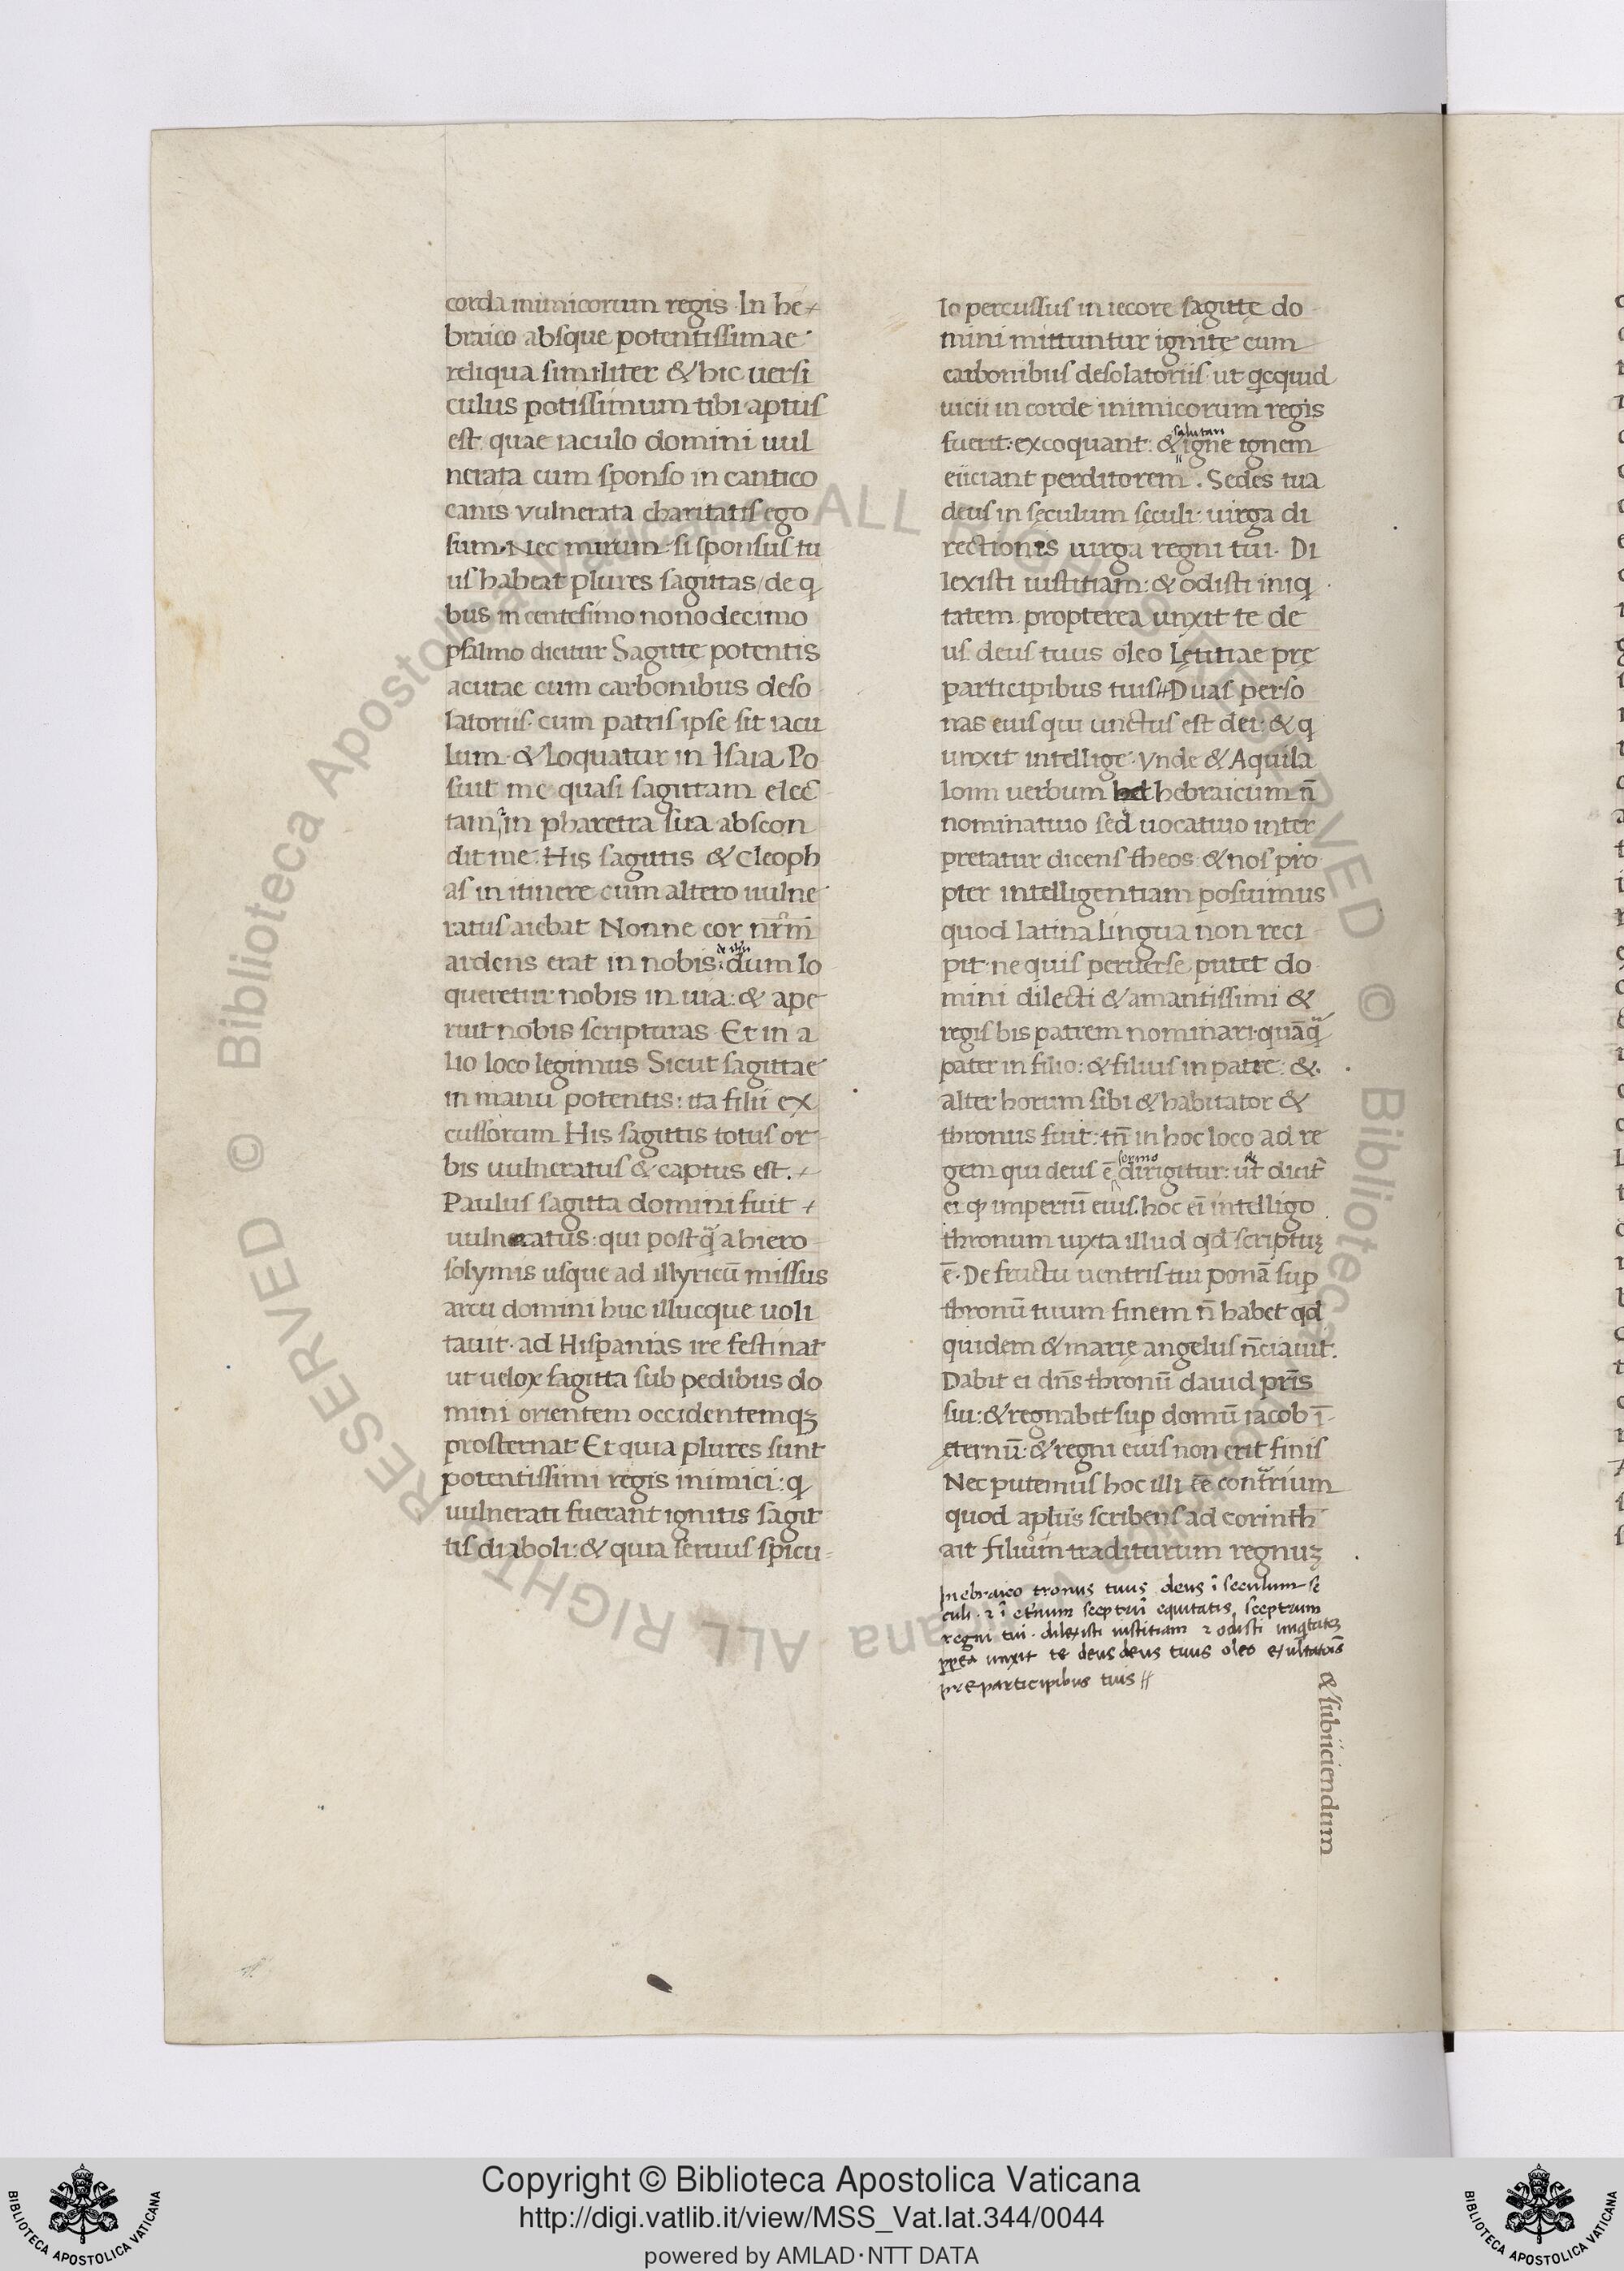 corda inimicorum regis. In he-
braico absque potentissimae
reliqua similiter & hic uersi
culus potissimum tibi aptus
est quae iaculo domini uul
nerata cum sponso in cantico
canis vulnerata charitatis ego
sum. Nec mirum si sponsus tu
us habeat plures sagittas / de q
bus in centesimo nonodecimo
psalmo dicitur Sagitte potentis
acutae cum carbonibus deso
latoriis cum patris ipse sit iacu
lum & loquatur in Isaia Po
suit me quasi sagittam elec
tam & in pharetra sua abscon
dit me. His sagittis & Cleoph
as in itinere cum altero uulne
ratus aiebat Nonne cor nr̄m̄
ardens erat in nobis dum lo
queretur nobis in uia: & ape
ruit nobis scripturas Et in a
lio loco legimus Sicut sagittae
in manu potentis: ita filii ex
cussorum His sagittis totus or
bis uulneratus & captus est.
Paulus sagitta domini fuit
uulneratus: qui postq̄ a hiero
solymis usque ad illyricū missus
arcu domini huc illucque uoli
tauit. ad Hispanias ire festinat
ut uelox sagitta sub pedibus do
mini orientem occidentemqꝫ
prosternat Et quia plures sunt
potentissimi regis inimici: q
uulnerati fuerant ignitis sagit
tis diaboli: & quia seruus spicu
lo percussus in iecore sagittę do
mini mittuntur ignitę cum
carbonibus desolatoriis ut qcquid
uicii in corde inimicorum regis
fuerit: excoquant: & salutari igne ignem
eiiciant perditorem. Sedes tua
deus in sęculum seculi: uirga di
rectionis uirga regni tui. Di
lexisti iustitiam: & odisti iniq
tatem propterea unxit te de
us deus tuus oleo Lętitiae prę
participibus tuis // Duas perso
nas eius qui unctus est dei: & q
unxit intellige. Vnde & Aquila
loim uerbum hebraicum n̄
nominatiuo sed uocatiuo inter
pretatur dicens theos & nos pro
pter intelligentiam posuimus
quod latina lingua non reci
pit ne quis peruerse putet do
mini dilecti & amantissimi &
regis bis patrem nominari quāq̄
pater in filio: & filius in patre: &
alter horum sibi & habitator &
thronus fuit: tn̄ in hoc loco ad re
gem qui deus ē sermo dirigitur: ut & dicit̄
ei q imperiū eius. hoc ei intelligo
thronum iuxta illud qd scriptuꝫ
ē. De fructu uentris tui ponā sup
thronū tuum finem n̄ habet qd
quidem & marię angelus n̄ciauit.
Dabit ei dn̄s thronū dauid pr̄is
sui: & regnabit sup domū iacob ī
ęternū: & regni eius non erit finis
Nec putemus hoc illi eē contrium
quod aplus scribens ad corinth
ait filium traditurum regnuꝫ
In ebraico tronus tuus deus ī seculum se
culi. ⁊ ī et'num sceptrū equitatis sceptrum
regni tui. dilexisti iustitiam ⁊ odisti iniqtateꝫ
pptea unxit te deus deus tuus oleo exultatoīs
pre participibus tuis //
& subiiciendum
Copyright © Biblioteca Apostolica Vaticana
http://digi.vatlib.it/view/MSS_Vat.lat.344/0044
powered by AMLAD·NTT DATA
BIBLIOTECA APOSTOLICA VATICANA
BIBLIOTECA APOSTOLICA VATICANA